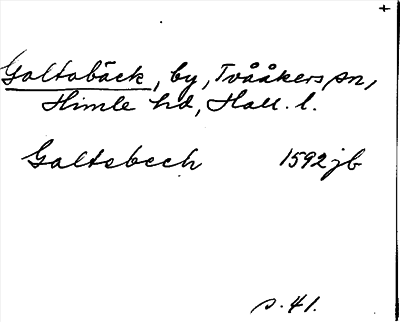 +
Galtabäck, by, Tvååkers sn,
Himle hd, Hall. l.
Galtebech 1592 jb
s. 41.